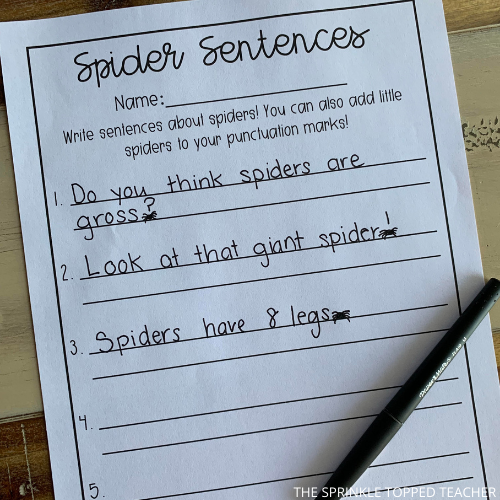 Spider Sentences
Name:
Write sentences about spiders! You can also add little
spiders to your punctuation marks!
1. Do you think spiders are
gross?
2. Look at that giant spider!
3. Spiders have 8 legs.
4.
5.
THE SPRINKLE TOPPED TEACHER